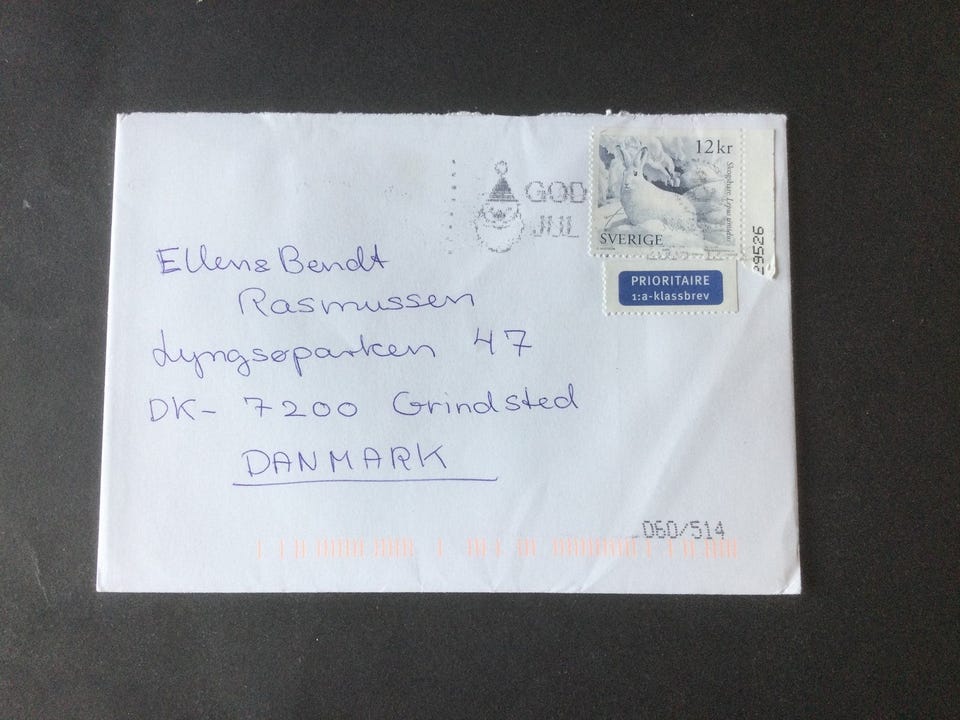 GOD
JUL
12 kr
Skogshare Lepus timidus
SVERIGE
29526
PRIORITAIRE
1:a-klassbrev
Ellen & Bendt
Rasmussen
Lyngsøparken 47
DK- 7200 Grindsted
DANMARK
060/514